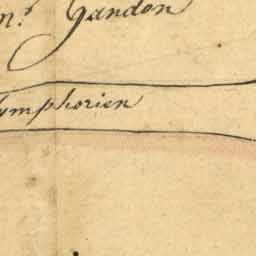 n.s Gandon
ymphorien